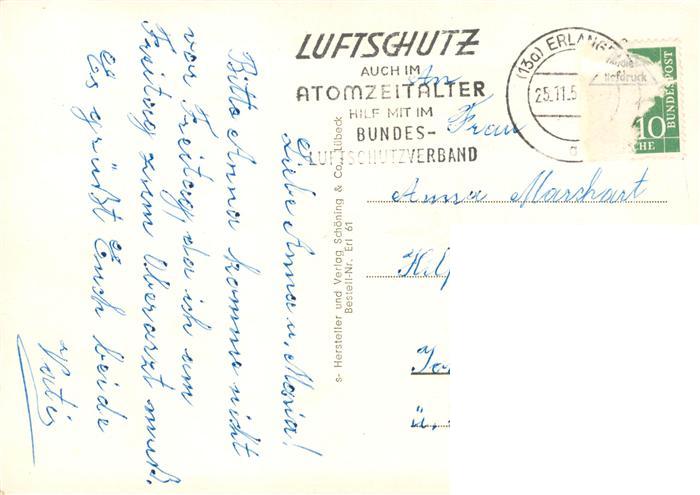 LUFTSCHUTZ
AUCH IM
ATOMZEITALTER
HILF MIT IM
BUNDES-
LUFTSCHUTZVERBAND
(13a) ERLANGE
25.11.5
a
tiefdruck
10
BUNDESPOST
HE
An
Frau
Anna Marshart
s- Hersteller und Verlag Schöning & Co., Lübeck
Bestell-Nr. Erl 61
Liebe Anna u. Maria!
Bitte Anna komme nicht
vor Freitag, da ich am
Freitag zum Oberarzt muß.
Es grüßt Euch beide